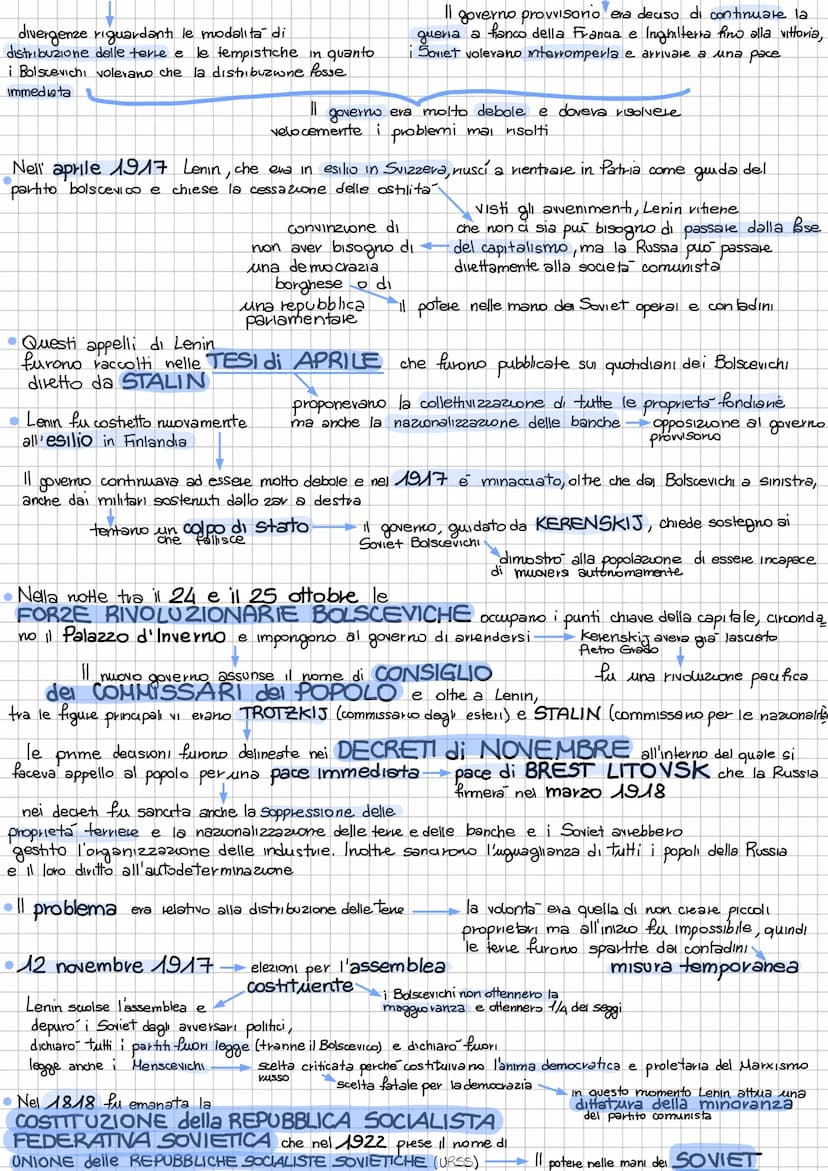 divergenze riguardanti le modalità di
distribuzione delle terre e le tempistiche in quanto
i Bolscevichi volevano che la distribuzione fosse
immediata
Il governo provvisorio era deciso di continuare la
guerra a fianco della Francia e Inghilterra fino alla vittoria,
i Soviet volevano interromperla e arrivare a una pace
Il governo era molto debole e doveva risolvere
velocemente i problemi mai risolti
Nell' aprile 1917 Lenin, che era in esilio in Svizzera, riuscì a rientrare in Patria come guida del
partito bolscevico e chiese la cessazione delle ostilità
visti gli avvenimenti, Lenin ritiene
che non ci sia più bisogno di passare dalla fase
del capitalismo, ma la Russia può passare
direttamente alla società comunista
convinzione di
non aver bisogno di
una democrazia
borghese o di
una repubblica
parlamentare
il potere nelle mano dei Soviet operai e contadini
• Questi appelli di Lenin
furono raccolti nelle TESI di APRILE che furono pubblicate sui quotidiani dei Bolscevichi
diretto da STALIN
proponevano la collettivizzazione di tutte le proprietà fondiarie
ma anche la nazionalizzazione delle banche → opposizione al governo
provvisorio
• Lenin fu costretto nuovamente
all'esilio in Finlandia
Il governo continuava ad essere molto debole e nel 1917 è minacciato, oltre che dai Bolscevichi a sinistra,
anche dai militari sostenuti dallo zar a destra
tentano un colpo di Stato → il governo, guidato da KERENSKIJ, chiede sostegno ai
che fallisce
Soviet Bolscevichi
dimostrò alla popolazione di essere incapace
di muoversi autonomamente
• Nella notte tra il 24 e il 25 ottobre le
FORZE RIVOLUZIONARIE BOLSCEVICHE occupano i punti chiave della capitale, circonda
no il Palazzo d'Inverno e impongono al governo di arrendersi → Kerenskij aveva già lasciato
Pietro Grado
fu una rivoluzione pacifica
Il nuovo governo assunse il nome di CONSIGLIO
dei COMMISSARI del POPOLO e oltre a Lenin,
tra le figure principali vi erano TROTZKIJ (commissario degli esteri) e STALIN (commissario per le nazionalità
le prime decisioni furono delineate nei DECRETI di NOVEMBRE all'interno del quale si
faceva appello al popolo per una pace immediata → pace di BREST LITOVSK che la Russia
firmerà nel marzo 1918
nei decreti fu sancita anche la soppressione delle
proprietà terriere e la nazionalizzazione delle terre e delle banche e i Soviet avrebbero
gestito l'organizzazione delle industrie. Inoltre sancirono l'uguaglianza di tutti i popoli della Russia
e il loro diritto all'autodeterminazione
• Il problema era relativo alla distribuzione delle terre → la volontà era quella di non creare piccoli
proprietari ma all'inizio fu impossibile, quindi
le terre furono spartite dai contadini
misura temporanea
• 12 novembre 1917 → elezioni per l'assemblea
costituente
i Bolscevichi non ottennero la
maggioranza e ottennero 1/4 dei seggi
Lenin sciolse l'assemblea e
depurò i Soviet dagli avversari politici,
dichiarò tutti i partiti fuori legge (tranne il Bolscevico) e dichiarò fuori
legge anche i Menscevichi → scelta criticata perché costituivano l'anima democratica e proletaria del Marxismo
russo
scelta fatale per la democrazia
in questo momento Lenin attua una
dittatura della minoranza
del partito comunista
• Nel 1818 fu emanata la
COSTITUZIONE della REPUBBLICA SOCIALISTA
FEDERATIVA SOVIETICA che nel 1922 prese il nome di
UNIONE delle REPUBBLICHE SOCIALISTE SOVIETICHE (URSS) → Il potere nelle mani dei SOVIET